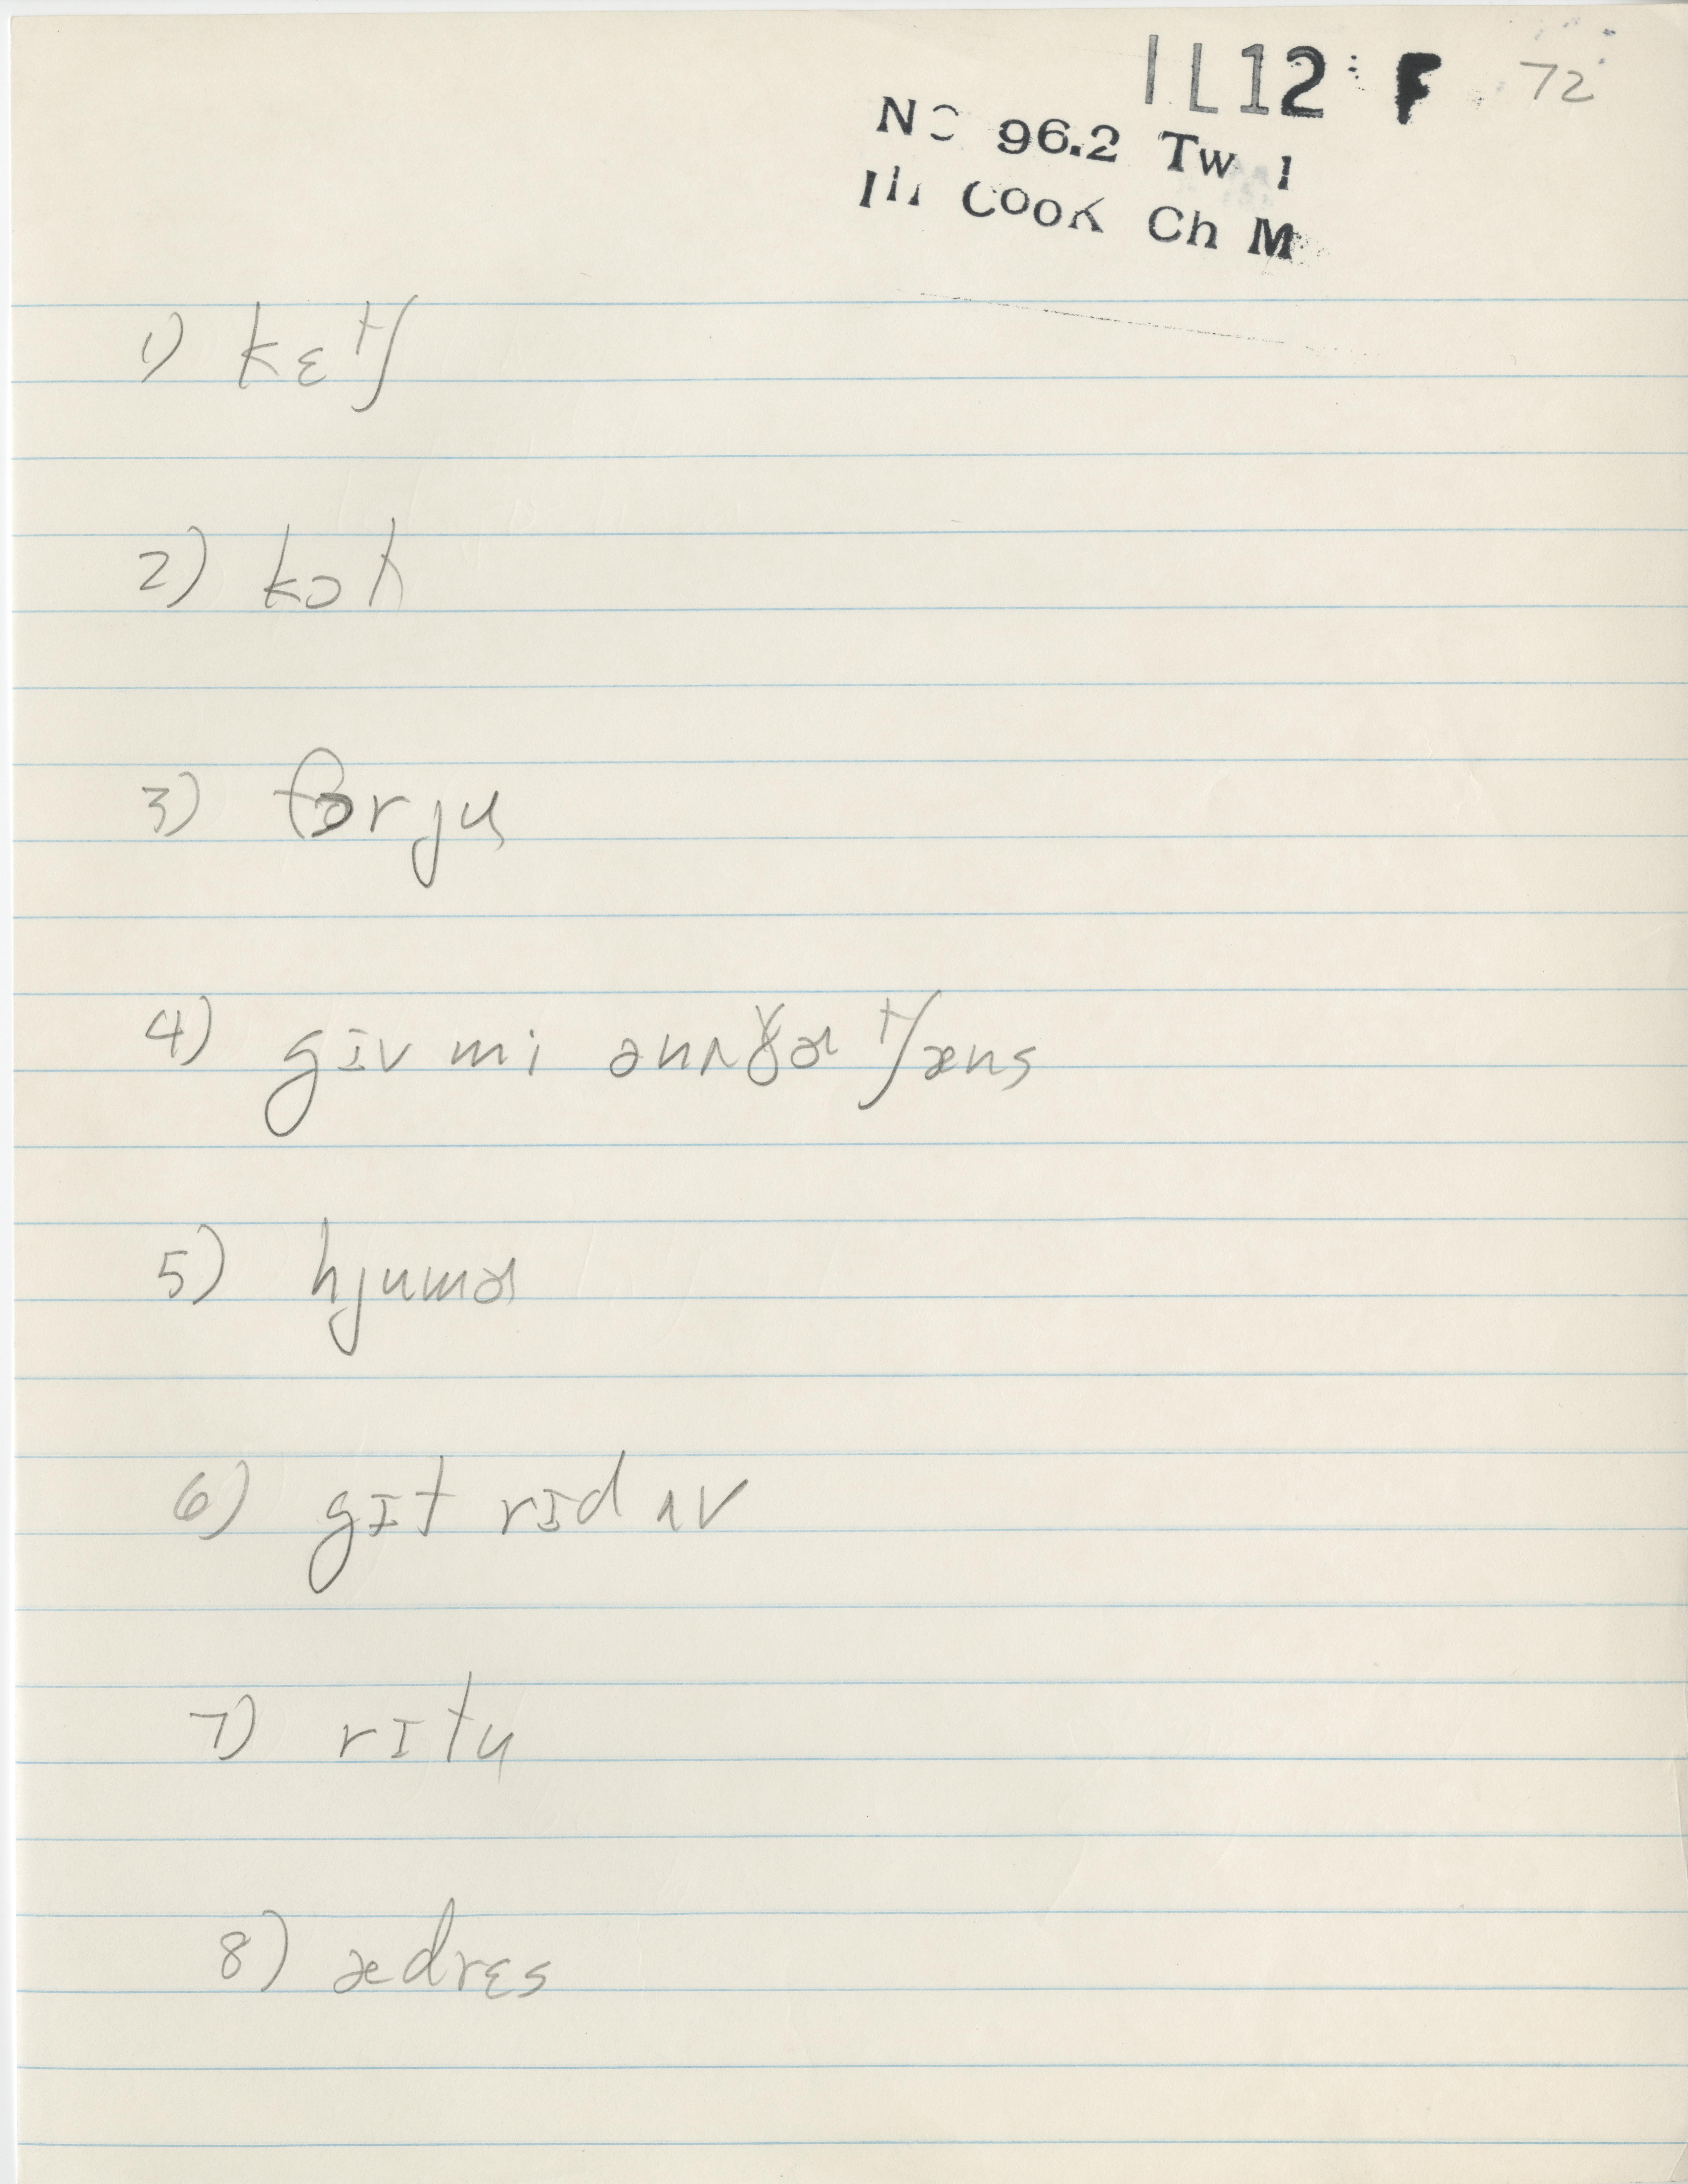 IL12 F 72
NC 96.2 Tw 1
Ill Cook Ch M
1) kɛtʃ
2) kɔt
3) fɔrju
4) gɪv mi ənʌðɚ tʃæns
5) hjumɚ
6) gɪt rɪd ʌv
7) rɪtu
8) ædrɛs